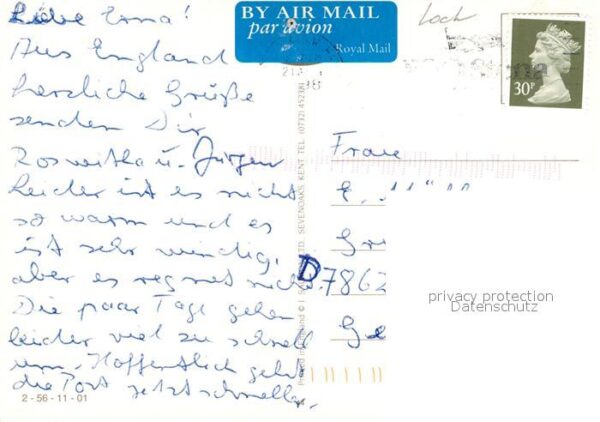 Liebe Erna!
Aus England
herzliche Grüße
senden Dir
Roswitha u. Jürgen
Leider ist es nicht
so warm und es
ist sehr windig,
aber es regnet nicht.
Die paar Tage gehen
leider viel zu schnell
um. Hoffentlich geht
die Post jetzt schneller.
2-56-11-01
BY AIR MAIL
par avion
Royal Mail
LTD. SEVENOAKS, KENT. TEL. (0732) 452381
Loch
30P
Frau
E
Gr
D7862
Ge
privacy protection
Datenschutz